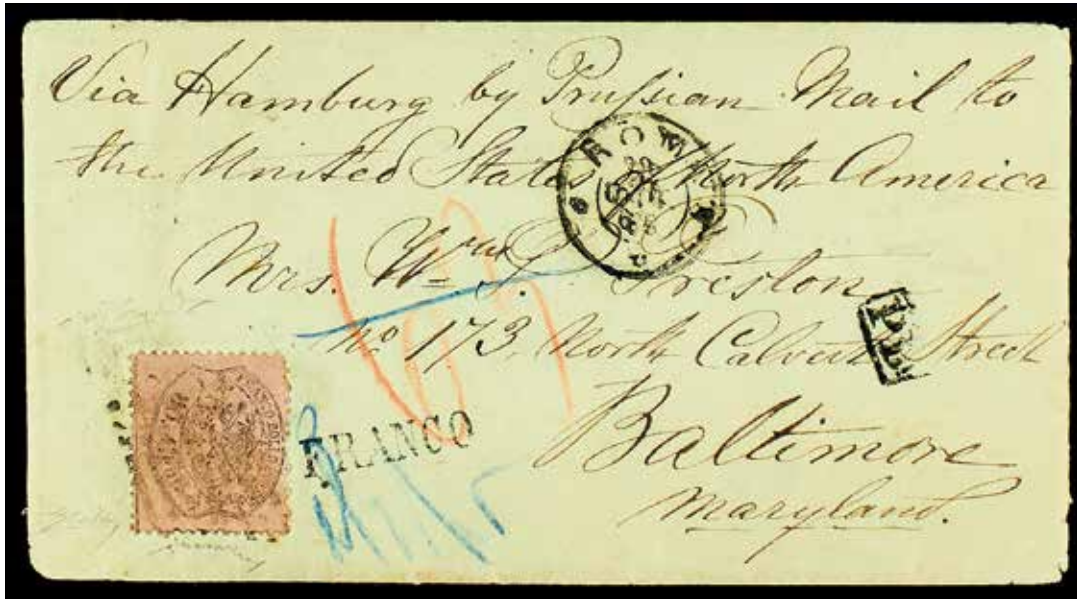 Via Hamburg by Prussian Mail to
the United States North America
ROMA
Mrs. Wm. P. Preston
No 173, North Calvert Street
FRANCO
Baltimore
Maryland.